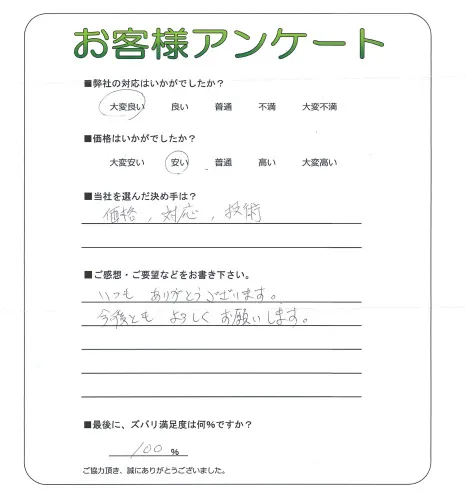 お客様アンケート
■弊社の対応はいかがでしたか？
大変良い 良い 普通 不満 大変不満
■価格はいかがでしたか？
大変安い 安い 普通 高い 大変高い
■当社を選んだ決め手は？
価格，対応，技術
■ご感想・ご要望などをお書き下さい。
いつも ありがとうございます。
今後とも よろしく お願いします。
■最後に、ズバリ満足度は何%ですか？
100 %
ご協力頂き、誠にありがとうございました。